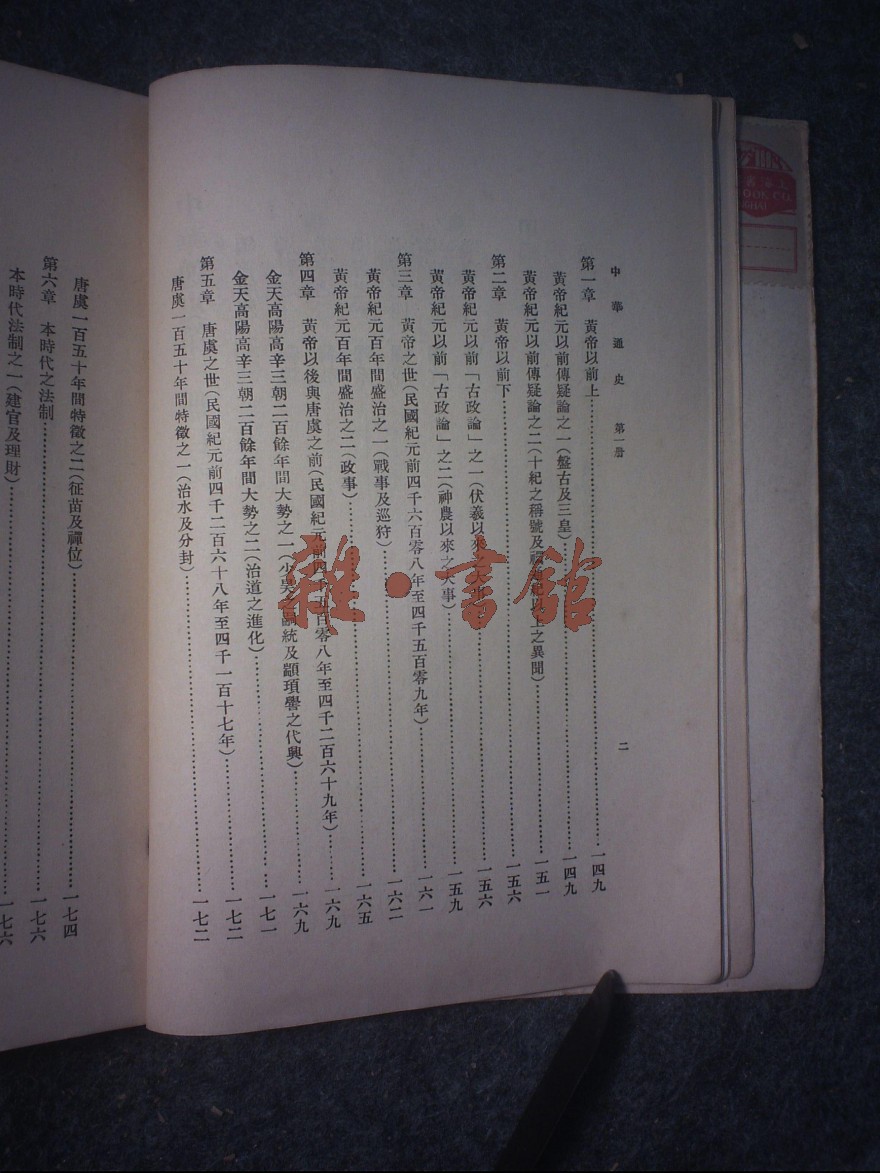 中華通史 第一册
二
第一章 黃帝以前上……一四九
黃帝紀元以前傳疑論之一(盤古及三皇)……一四九
黃帝紀元以前傳疑論之二(十紀之稱號及禪通紀以上之異聞)……一五一
第二章 黃帝以前下……一五六
黃帝紀元以前「古政論」之一(伏羲以來之大事)……一五六
黃帝紀元以前「古政論」之二(神農以來之大事)……一五九
第三章 黃帝之世(民國紀元前四千六百零八年至四千五百零九年)……一六一
黃帝紀元百年間盛治之一(戰事及巡狩)……一六二
黃帝紀元百年間盛治之二(政事)……一六五
第四章 黃帝以後與唐虞之前(民國紀元前四千五百零八年至四千二百六十九年)……一六九
金天高陽高辛三朝二百餘年間大勢之一(少昊之嗣統及顓頊嚳之代興)……一六九
金天高陽高辛三朝二百餘年間大勢之二(治道之進化)……一七一
第五章 唐虞之世(民國紀元前四千二百六十八年至四千一百十七年)……一七二
唐虞一百五十年間特徵之一(治水及分封)……一七二
唐虞一百五十年間特徵之二(征苗及禪位)……一七四
第六章 本時代之法制……一七六
本時代法制之一(建官及理財)……一七六
雜·書館